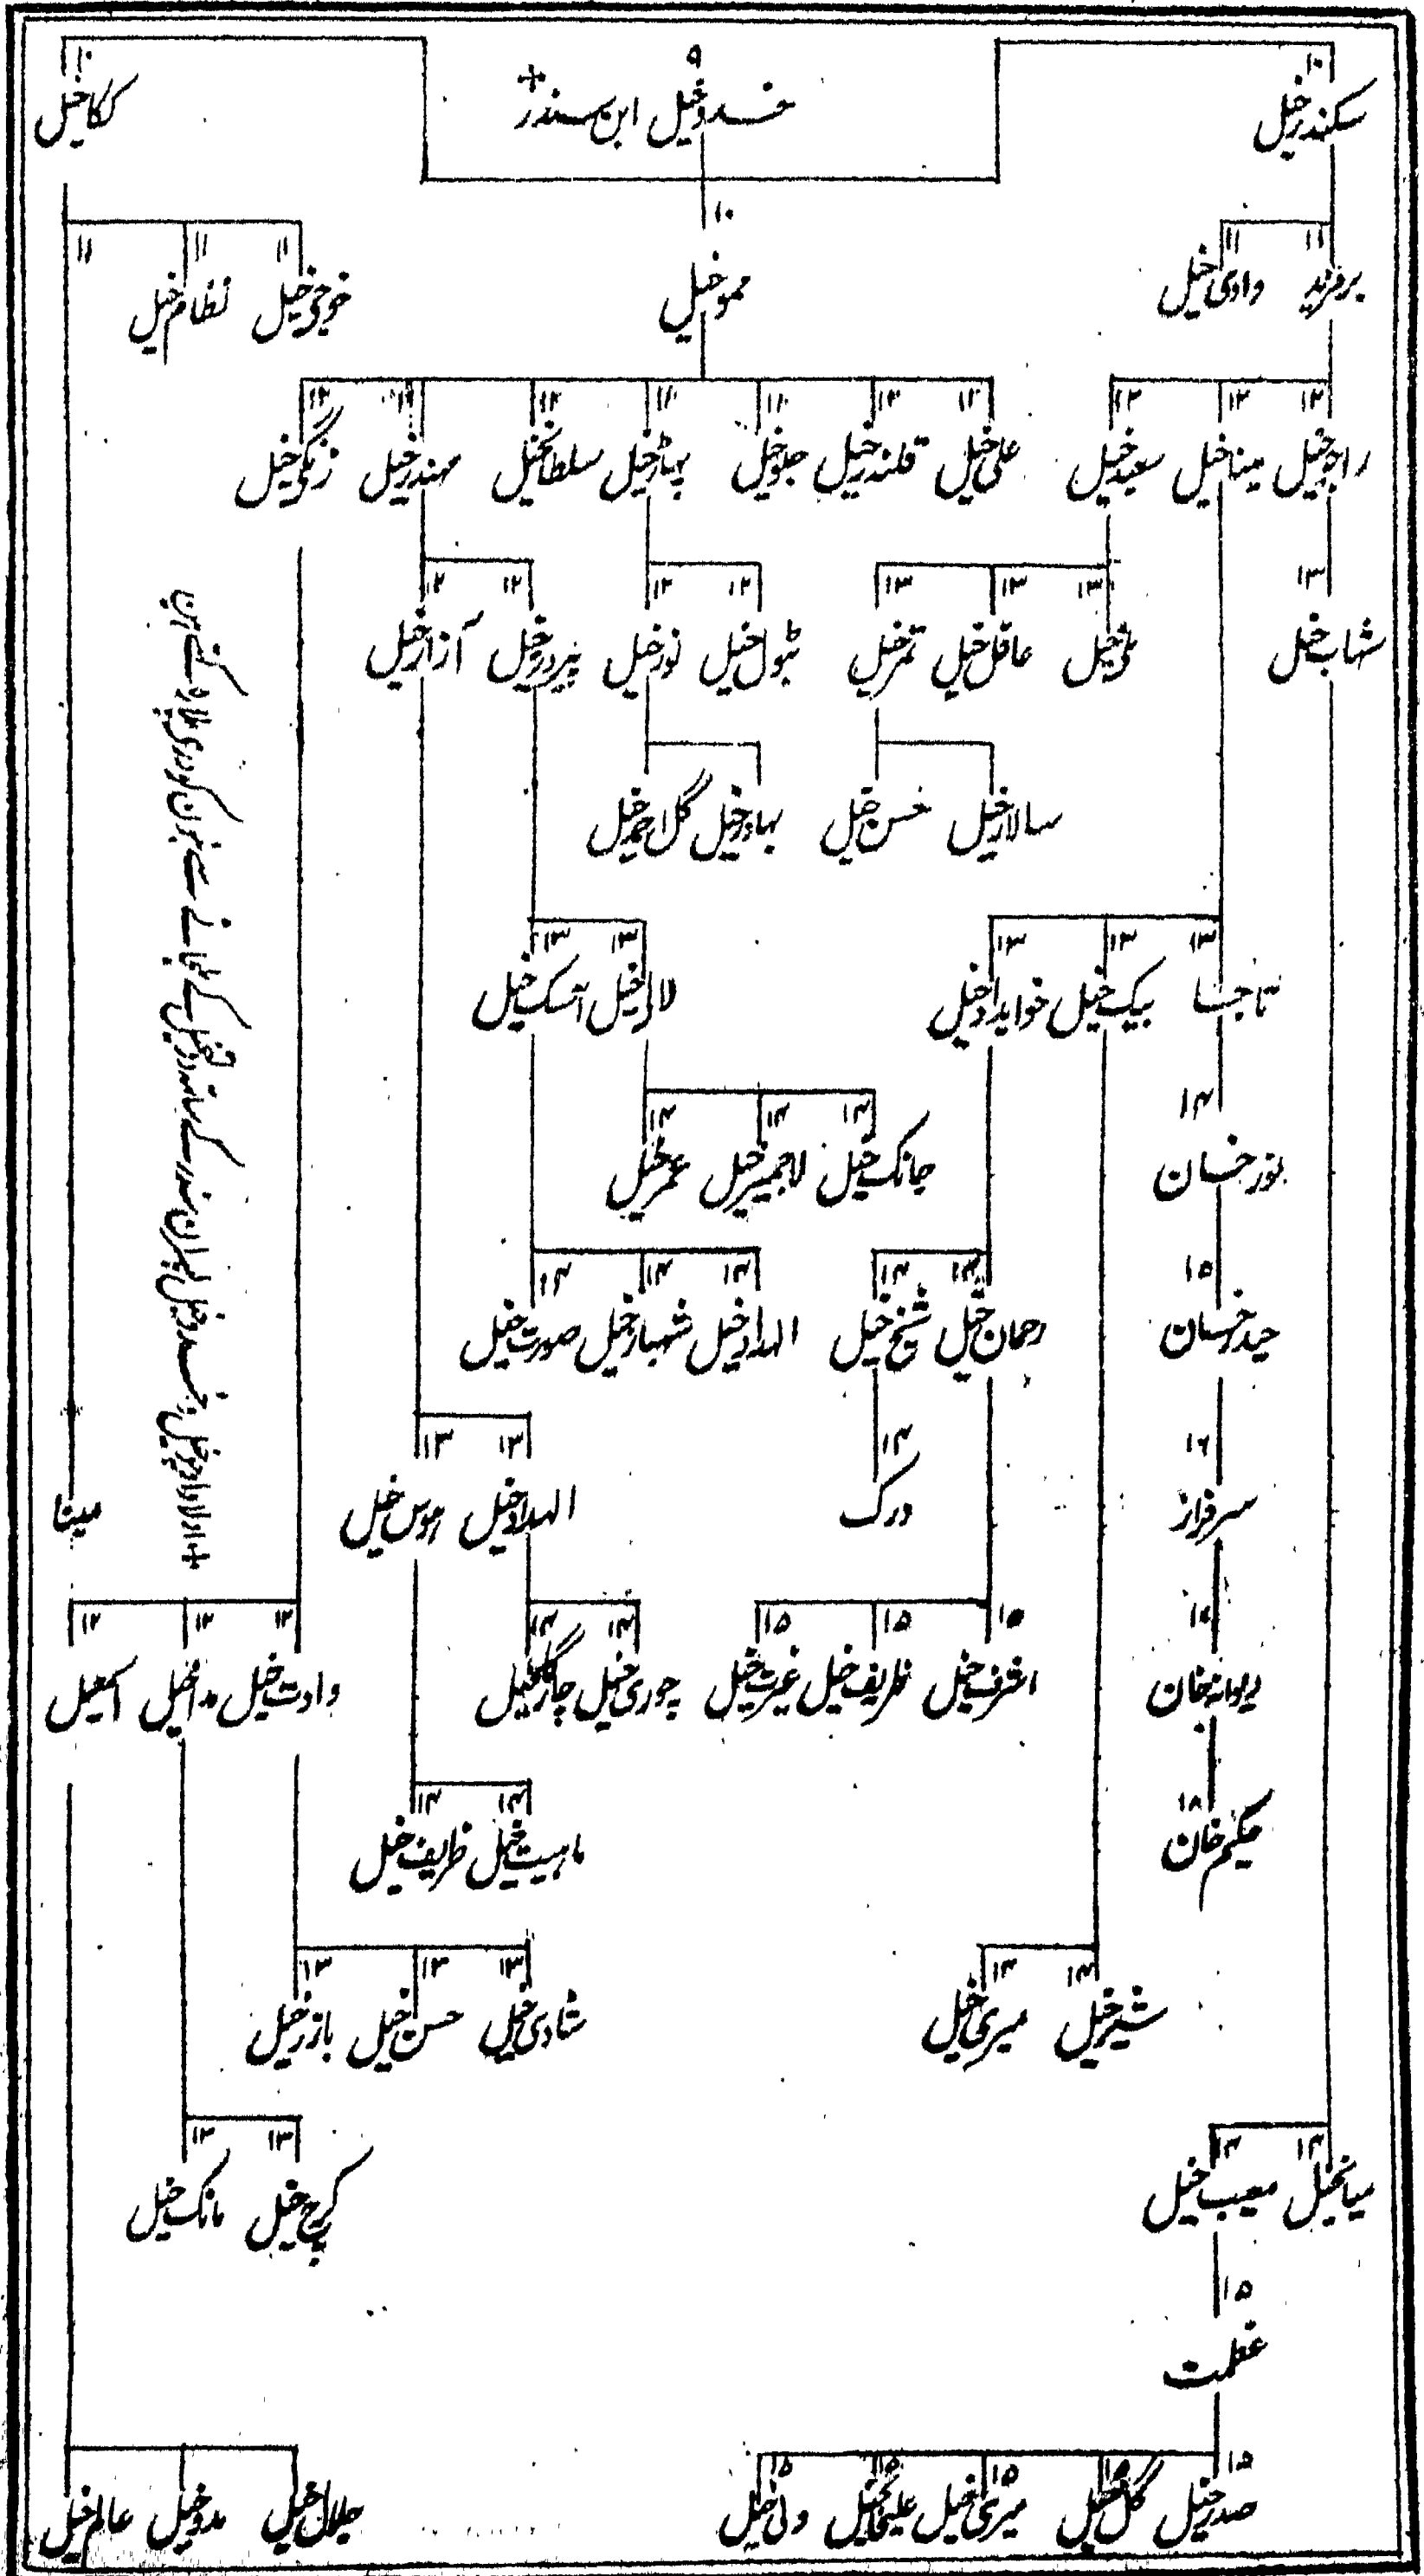 ۹
خدوخیل ابن سندر +
۱۰
سکندرخیل
۱۰
ککاخیل
۱۰
مموخیل
۱۱ ۱۱
وادی خیل
۱۱ ۱۱ ۱۱
خوجی خیل نظام خیل
۱۲ ۱۲ ۱۲
راجوخیل میناخیل سعیدخیل
۱۲ ۱۲ ۱۱ ۱۱ ۱۲ ۱۲ ۱۲
علی خیل قلندرخیل جلوخیل پہاڑخیل سلطانخیل مہندرخیل زنگی خیل
۱۳
شہاب خیل
۱۳ ۱۳ ۱۳
ملی خیل عاقل خیل قمرخیل
۱۲ ۱۲
ٹبول خیل نورخیل
۱۲ ۱۲
پیروزخیل آزارخیل
سالارخیل حسن خیل
بہادرخیل گل احمدخیل
۱۳ ۱۳ ۱۳
تاجسا بیک خیل خوایدادخیل
۱۳ ۱۳
لالوخیل آسک خیل
۱۴
نورخسان
۱۴ ۱۴ ۱۴
جانک خیل لاجمیرخیل عمرخیل
۱۵
حیدرخسان
۱۴ ۱۴
رحمان خیل شیخ خیل
۱۴ ۱۴ ۱۴
الہدادخیل شہبازخیل صورت خیل
۱۶
سرفراز
۱۴
درک
۱۳ ۱۳
الہدادخیل موس خیل
مینا
۱۷
دیوانہ خان
۱۵ ۱۵ ۱۵
اشرف خیل ظریف خیل غیرت خیل
۱۴ ۱۴
چوری خیل
۱۲ ۱۲ ۱۲
وادت خیل مداخیل اسمعیل
۱۸
حیکم خان
۱۴ ۱۴
ماہیت خیل ظریف خیل
۱۴ ۱۴
شیرخیل میری خیل
۱۳ ۱۳ ۱۳
شادی خیل حسن خیل بازرخیل
۱۴ ۱۴
میانخیل معیب خیل
۱۳ ۱۳
مانک خیل
۱۵
عظمت
۱۵ ۱۵ ۱۵ ۱۵ ۱۵
صدرخیل گل خیل میری خیل علیخانخیل ولی خیل
جلال خیل مدوخیل عالم خیل